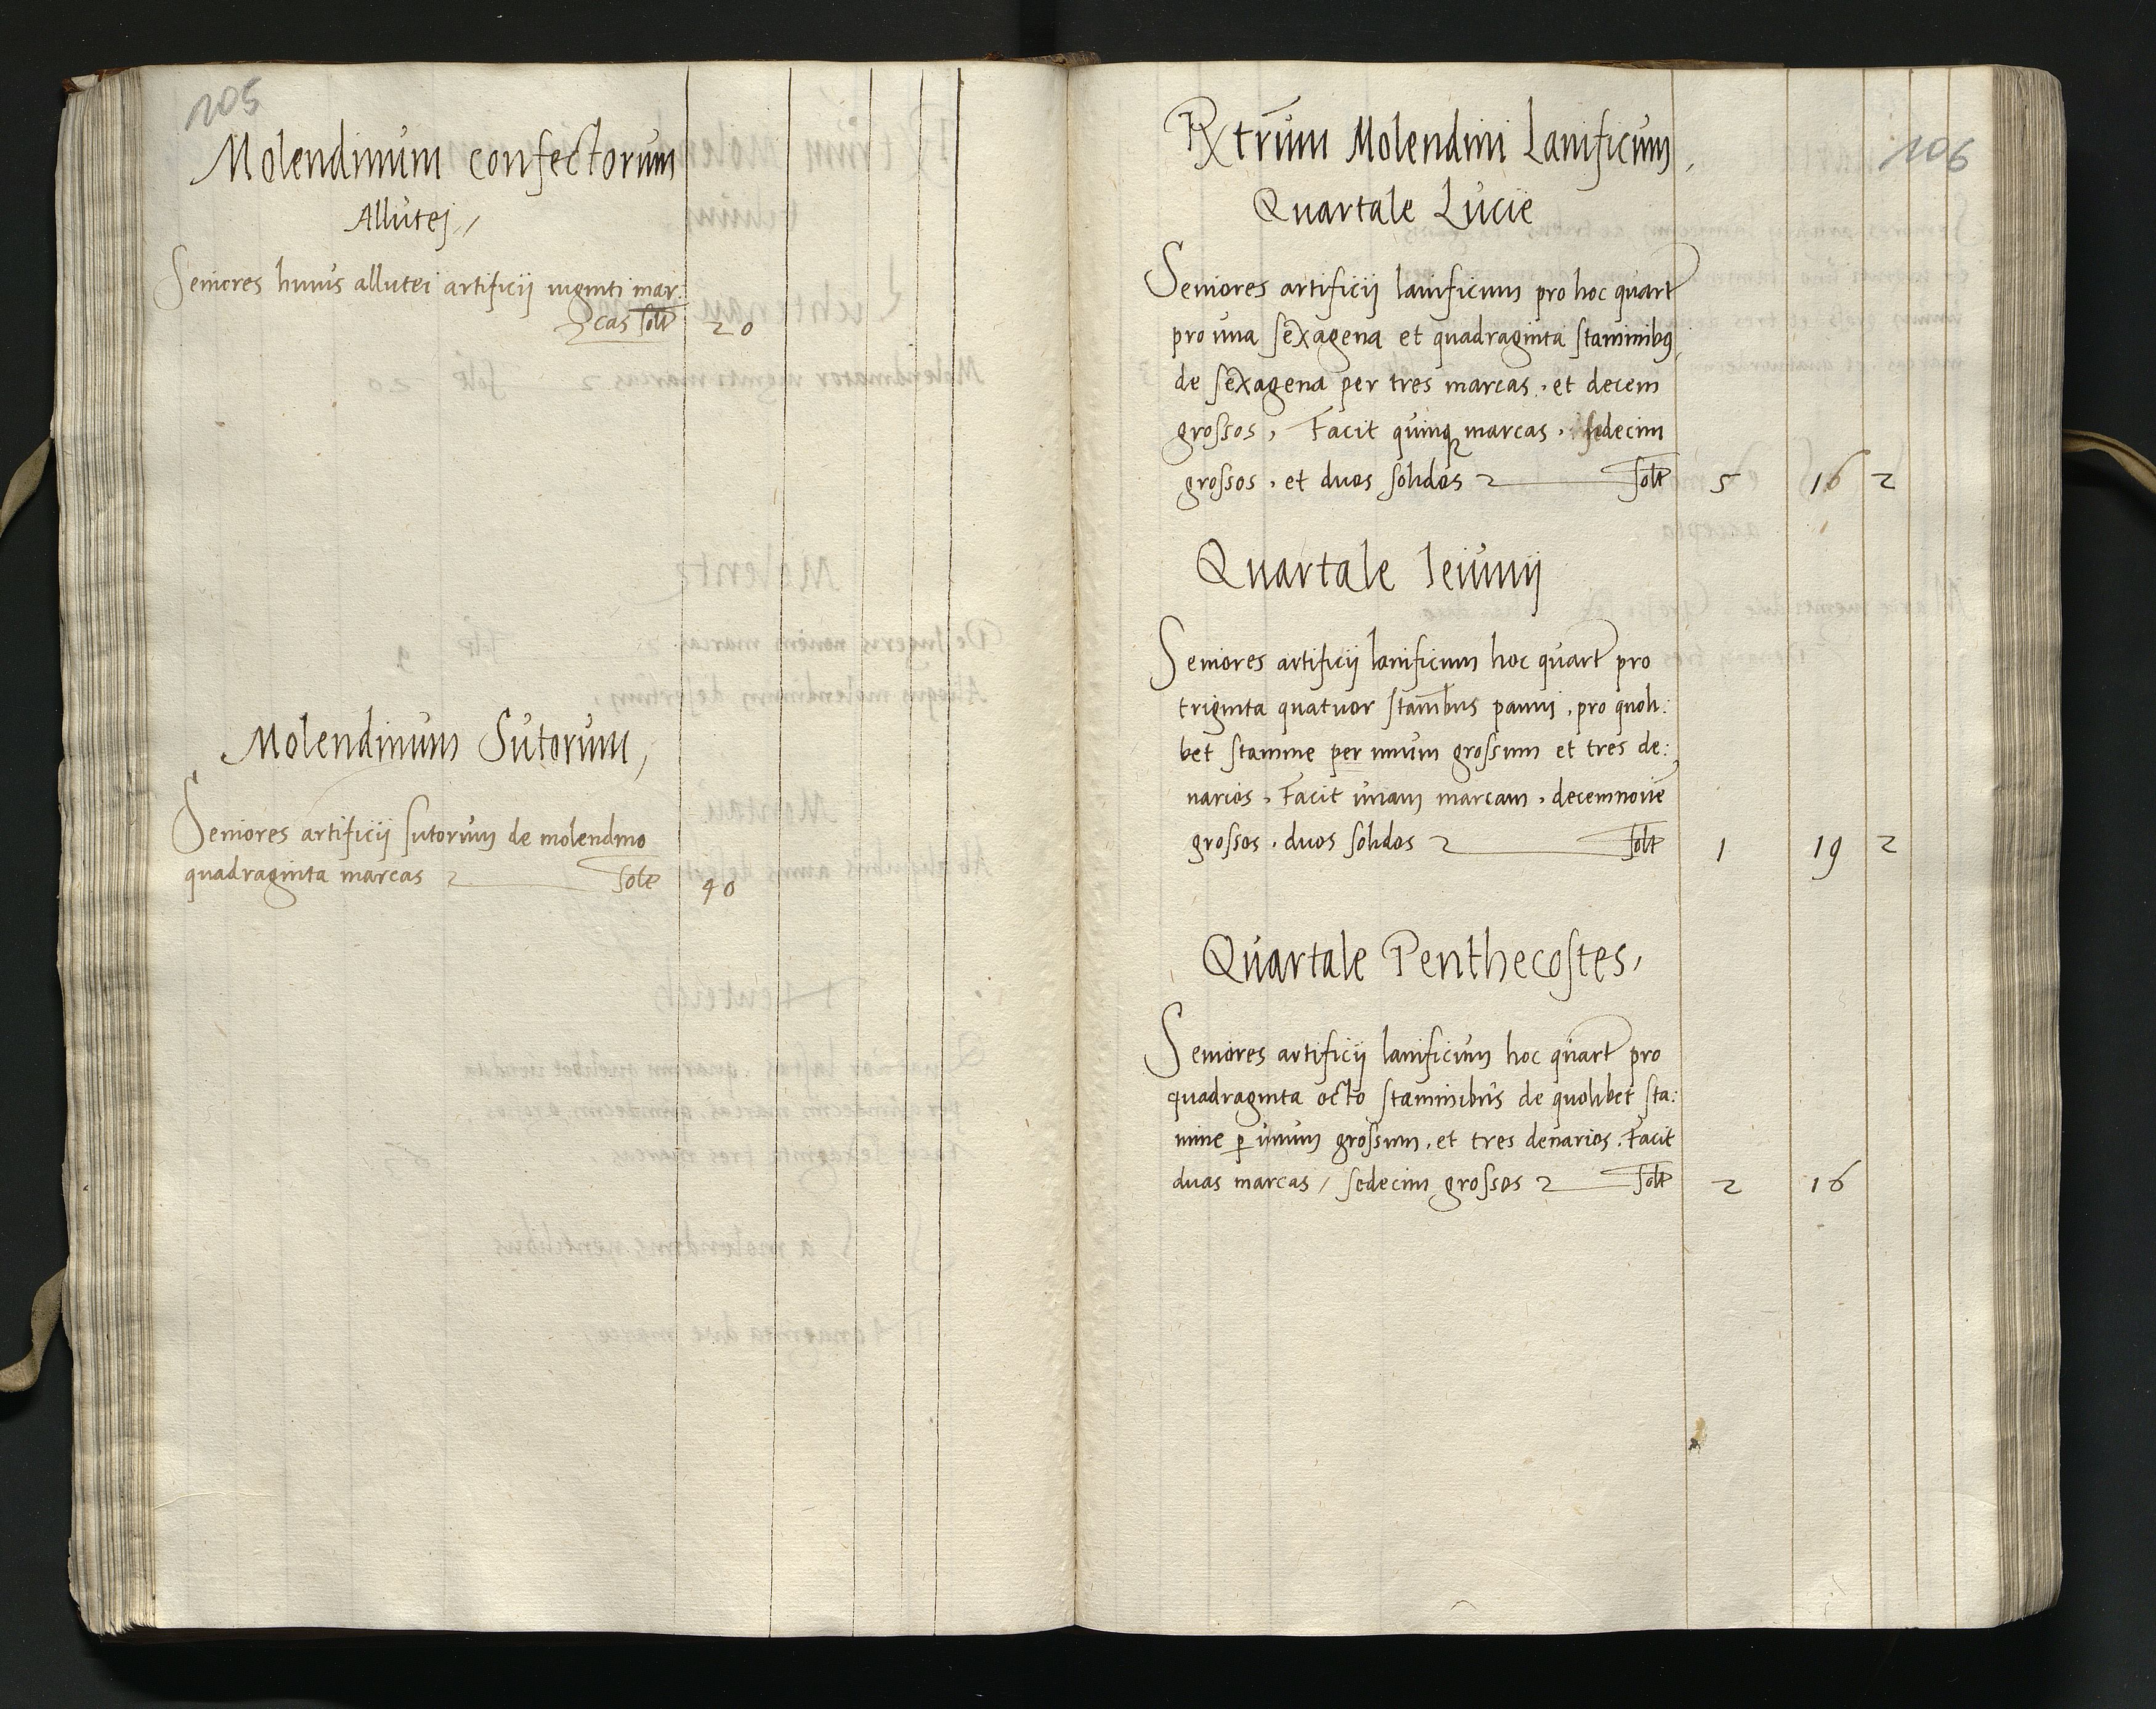 105
Molendinum confectorum
Allutej
Seniores huius allutei artificij viginti mar:
cas solt 20
Molendinum Sutorum,
Seniores artificij sutorum de molendino
quadraginta marcas solt 40
106
Molendini Lanificum,
Quartale Lucie
Seniores artificij lanificum pro hoc quart
pro una sexagena et quadraginta staminibus,
de sexagena per tres marcas, et decem
grossos, Facit quinque marcas, sedecim
grossos, et duos solidos solt 5 16 2
Quartale Ieiunij
Seniores artificij lanificum hoc quart pro
triginta quatuor stambus panni, pro quoli:
bet stamine per unum grossum et tres de:
narios, Facit unam marcam, decemnove
grossos, duos solidos solt 1 19 2
Quartale Penthecostes,
Seniores artificij lanificum hoc quart pro
quadraginta octo staminibus de quolibet sta:
mine p unum grossum, et tres denarios, Facit
duas marcas, sedecim grossos solt 2 16